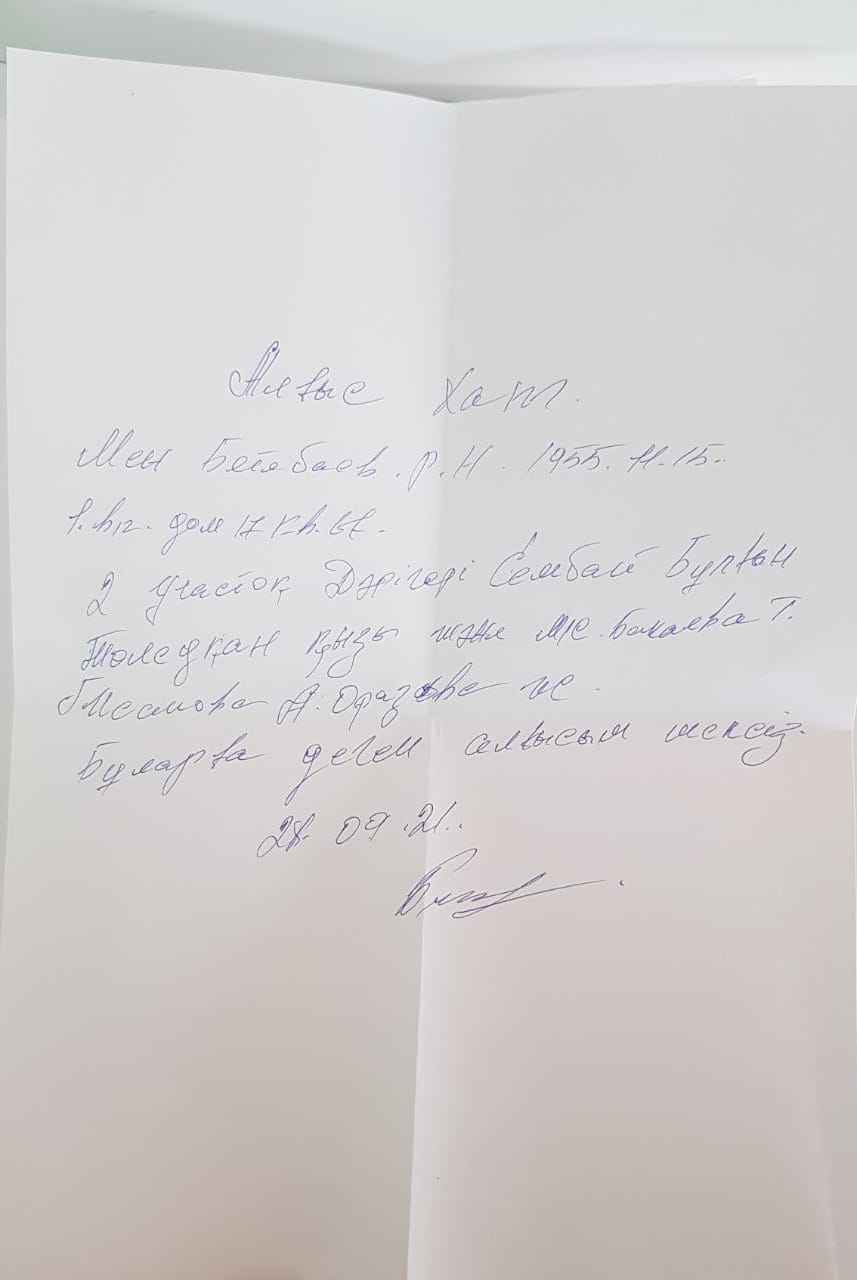 Алғыс Хат.
Мен Бегабаев. Р. Н. 1955. 11. 15.
дом 17 кв.
2 участок Дәрігері Сембай Бұлғын
Төлеуқан қызы және м/с. Т.
А. Оразова
Бұларға деген алғысым шексіз.
28. 09. 21.